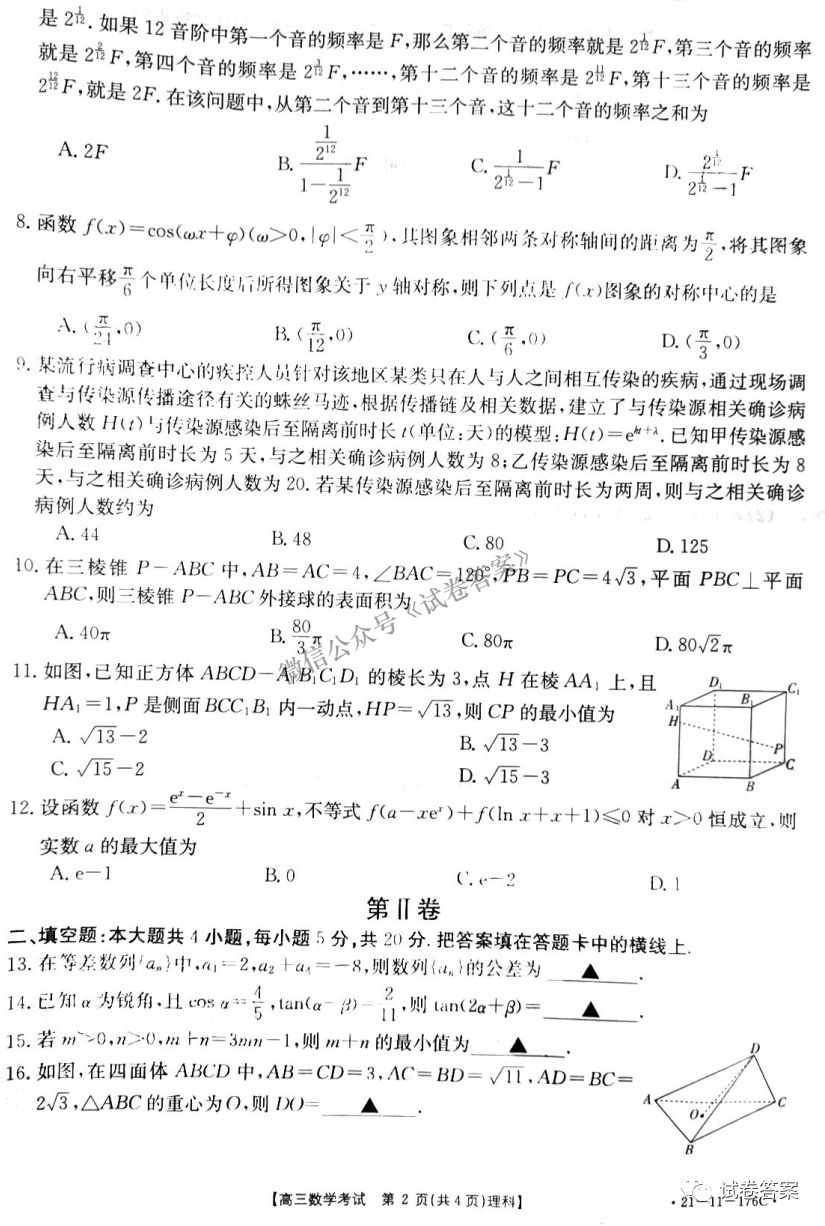 是 2^{1/12}. 如果 12 音阶中第一个音的频率是 F,那么第二个音的频率就是 2^{1/12}F,第三个音的频率
就是 2^{2/12}F,第四个音的频率是 2^{3/12}F,……,第十二个音的频率是 2^{11/12}F,第十三个音的频率是
2^{12/12}F,就是 2F. 在该问题中,从第二个音到第十三个音,这十二个音的频率之和为
A. 2F B. \frac{\frac{1}{2^{12}}}{1-\frac{1}{2^{12}}}F C. \frac{1}{2^{1/12}-1}F D. \frac{2^{1/12}}{2^{1/12}-1}F
8. 函数 f(x)=cos(ωx+φ)(ω>0,|φ|<π/2),其图象相邻两条对称轴间的距离为π/2,将其图象
向右平移π/6个单位长度后所得图象关于 y 轴对称,则下列点是 f(x)图象的对称中心的是
A. (π/24,0) B. (π/12,0) C. (π/6,0) D. (π/3,0)
9. 某流行病调查中心的疾控人员针对该地区某类只在人与人之间相互传染的疾病,通过现场调
查与传染源传播途径有关的蛛丝马迹,根据传播链及相关数据,建立了与传染源相关确诊病
例人数 H(t)与传染源感染后至隔离前时长 t(单位:天)的模型:H(t)=e^{kt+λ}. 已知甲传染源感
染后至隔离前时长为 5 天,与之相关确诊病例人数为 8;乙传染源感染后至隔离前时长为 8
天,与之相关确诊病例人数为 20. 若某传染源感染后至隔离前时长为两周,则与之相关确诊
病例人数约为
A. 44 B. 48 C. 80 D. 125
10. 在三棱锥 P-ABC 中,AB=AC=4,∠BAC=120°,PB=PC=4√3,平面 PBC⊥平面
ABC,则三棱锥 P-ABC 外接球的表面积为
A. 40π B. 80/3π C. 80π D. 80√2π
微信公众号《试卷答案》
11. 如图,已知正方体 ABCD-A₁B₁C₁D₁ 的棱长为 3,点 H 在棱 AA₁ 上,且
HA₁=1,P 是侧面 BCC₁B₁ 内一动点,HP=√13,则 CP 的最小值为
A. √13-2 B. √13-3
C. √15-2 D. √15-3
D₁ C₁ A₁ B₁ H P D C A B
12. 设函数 f(x)=\frac{e^x-e^{-x}}{2}+sin x,不等式 f(a-xe^x)+f(ln x+x+1)≤0 对 x>0 恒成立,则
实数 a 的最大值为
A. e-1 B. 0 C. e-2 D. 1
第Ⅱ卷
二、填空题:本大题共 4 小题,每小题 5 分,共 20 分. 把答案填在答题卡中的横线上.
13. 在等差数列{aₙ}中,a₁=2,a₂+a₄=-8,则数列{aₙ}的公差为 ▲ .
14. 已知 α 为锐角,且 cos α=4/5,tan(α-β)=2/11,则 tan(2α+β)= ▲ .
15. 若 m>0,n>0,m+n=3mn-1,则 m+n 的最小值为 ▲ .
16. 如图,在四面体 ABCD 中,AB=CD=3,AC=BD=√11,AD=BC=
2√3,△ABC 的重心为 O,则 DO= ▲ .
D A C O B
试卷答案
【高三数学考试 第 2 页(共 4 页)理科】 ·21-11-176C·